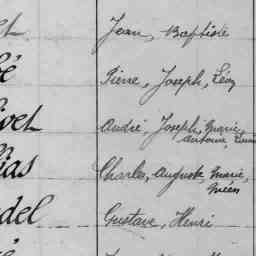 et Jean, Baptiste
é Pierre, Joseph, Léon
ivet André, Joseph, Marie,
Antoine,
lias Charles, Auguste, Marie,
del Gustave, Henri